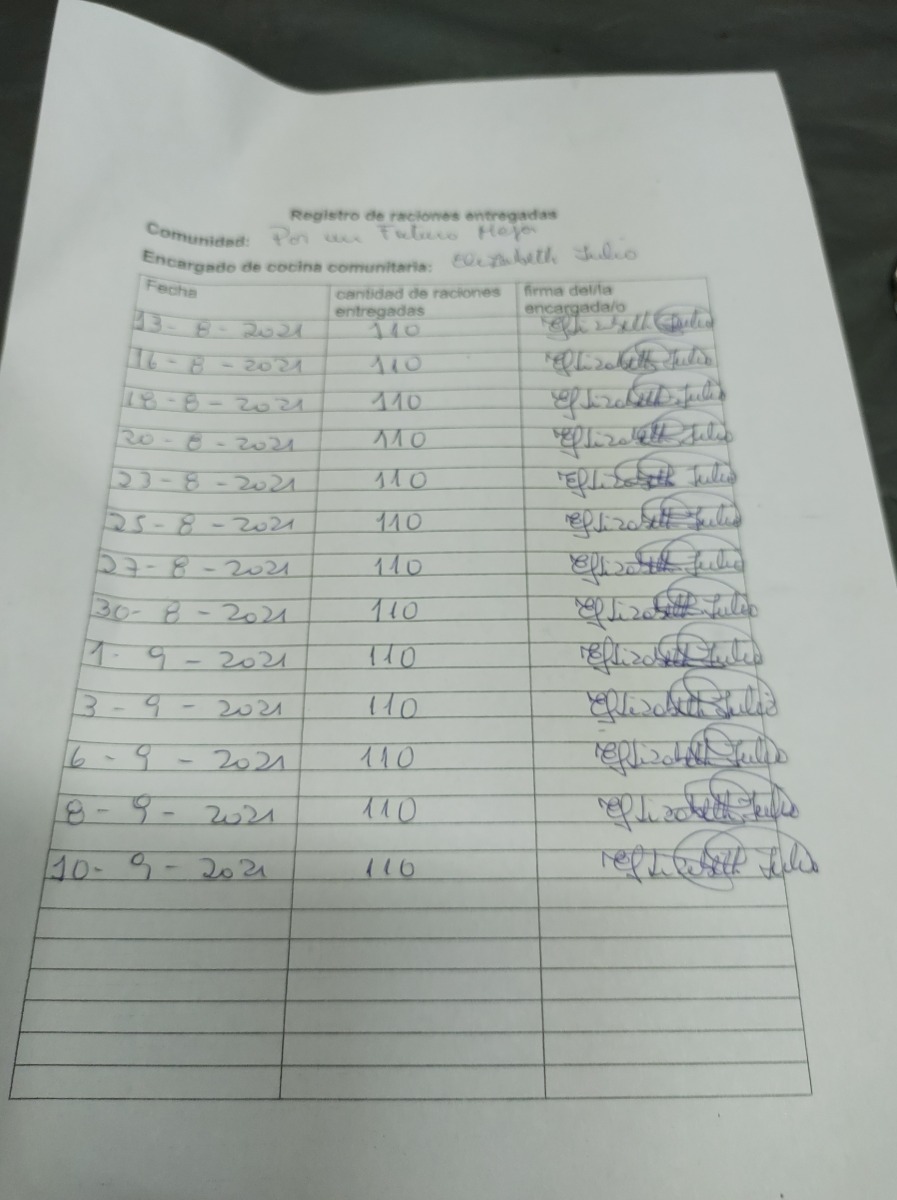 Registro de raciones entregadas
Comunidad: Por un Futuro Mejor
Encargado de cocina comunitaria: Elizabeth Julio
Fecha cantidad de raciones entregadas firma del/la encargada/o
13-8-2021 110 Elizabeth Julio
16-8-2021 110 Elizabeth Julio
18-8-2021 110 Elizabeth Julio
20-8-2021 110 Elizabeth Julio
23-8-2021 110 Elizabeth Julio
25-8-2021 110 Elizabeth Julio
27-8-2021 110 Elizabeth Julio
30-8-2021 110 Elizabeth Julio
1-9-2021 110 Elizabeth Julio
3-9-2021 110 Elizabeth Julio
6-9-2021 110 Elizabeth Julio
8-9-2021 110 Elizabeth Julio
10-9-2021 110 Elizabeth Julio